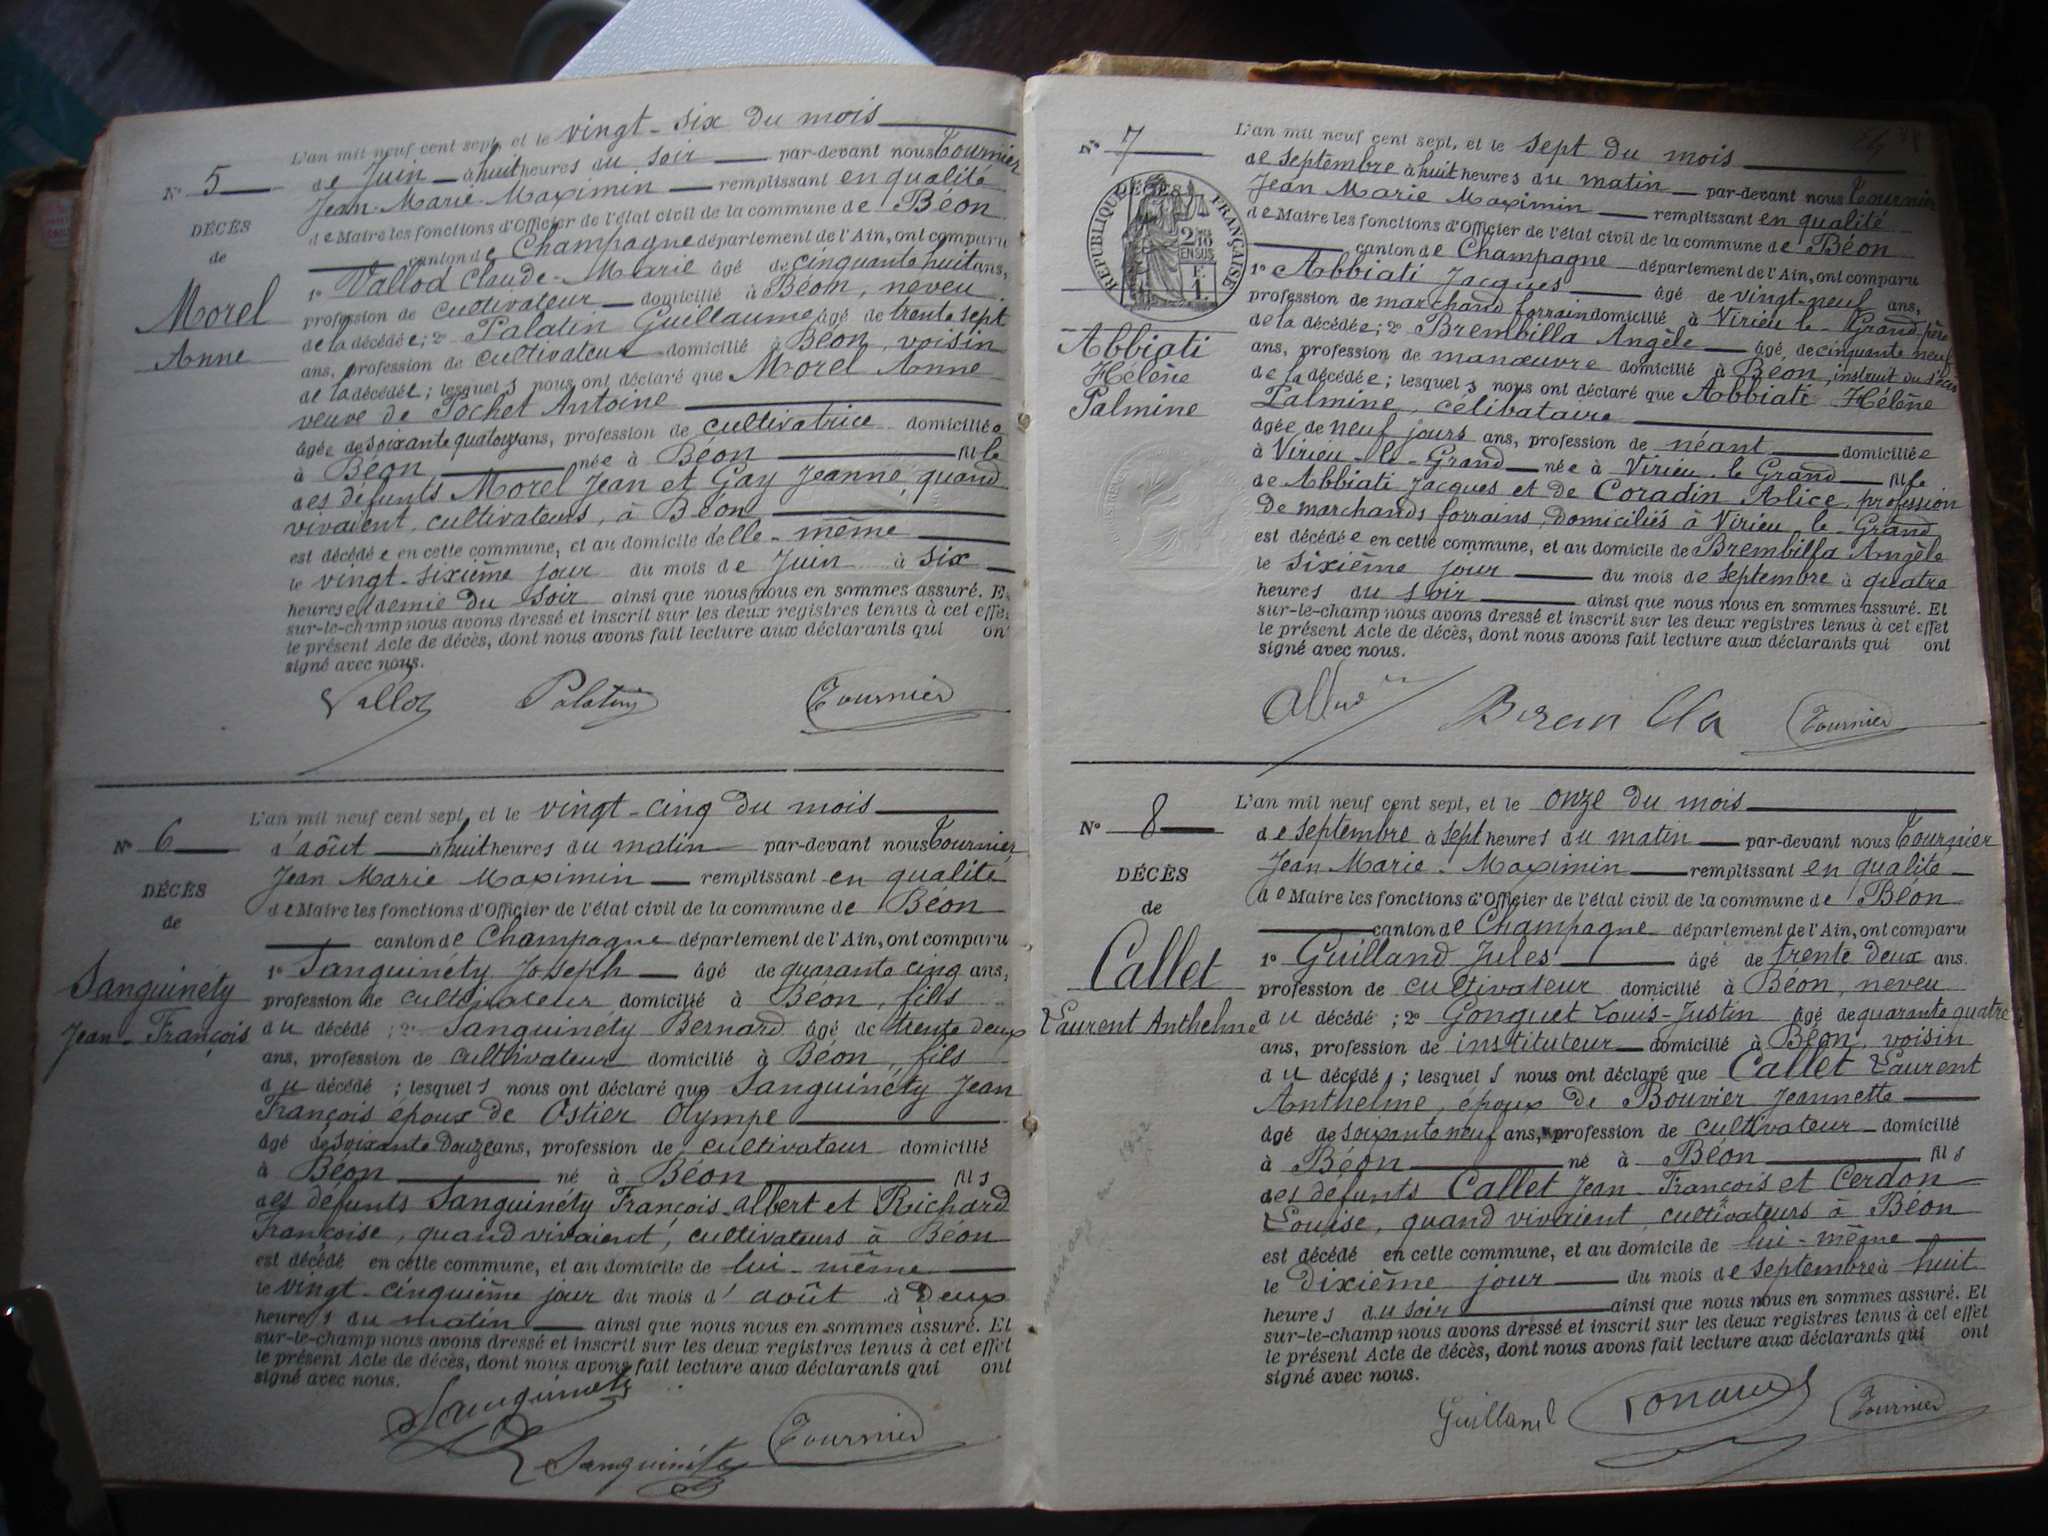 L'an mil neuf cent sept, et le vingt-six du mois
Nº 5
de Juin à huit heures du soir par-devant nous Tournier
Jean Marie Maximin remplissant en qualité
DÉCÈS
de Maire les fonctions d'Officier de l'état civil de la commune de Béon
de
canton de Champagne département de l'Ain, ont comparu
Morel
Anne
1º Vallod Claude-Marie âgé de cinquante huit ans,
profession de cultivateur domicilié à Béon, neveu
de la décédée; 2º Palatin Guillaume âgé de trente sept
ans, profession de cultivateur domicilié à Béon, voisin
de la décédée; lesquels nous ont déclaré que Morel Anne
veuve de Pochet Antoine
âgée de soixante quatorze ans, profession de cultivatrice domiciliée
à Béon née à Béon fille
des défunts Morel Jean et Gay Jeanne, quand
vivaient, cultivateurs, à Béon
est décédée en cette commune, et au domicile d'elle-même
le vingt-sixième jour du mois de Juin à six
heures et demie du soir ainsi que nous nous en sommes assuré. E
sur-le-champ nous avons dressé et inscrit sur les deux registres tenus à cet effe
le présent Acte de décès, dont nous avons fait lecture aux déclarants qui on
signé avec nous.
Vallod Palatin Tournier
L'an mil neuf cent sept, et le vingt-cinq du mois
Nº 6
d'août à huit heures du matin par-devant nous Tournier
Jean Marie Maximin remplissant en qualité
DÉCÈS
de Maire les fonctions d'Officier de l'état civil de la commune de Béon
de
canton de Champagne département de l'Ain, ont comparu
Sanguinéty
Jean-François
1º Sanguinéty Joseph âgé de quarante cinq ans,
profession de cultivateur domicilié à Béon, fils
du décédé; 2º Sanguinéty Bernard âgé de trente deux
ans, profession de cultivateur domicilié à Béon, fils
du décédé; lesquels nous ont déclaré que Sanguinéty Jean
François époux de Ostier Olympe
âgé de soixante douze ans, profession de cultivateur domicilié
à Béon né à Béon fils
des défunts Sanguinéty François Albert et Richard
Françoise, quand vivaient, cultivateurs à Béon
est décédé en cette commune, et au domicile de lui-même
le vingt-cinquième jour du mois d'août à Deux
heures du matin ainsi que nous nous en sommes assuré. Et
sur-le-champ nous avons dressé et inscrit sur les deux registres tenus à cet effet
le présent Acte de décès, dont nous avons fait lecture aux déclarants qui ont
signé avec nous.
Sanguinéty
Sanguinéty Tournier
L'an mil neuf cent sept, et le sept du mois
Nº 7
de septembre à huit heures du matin par-devant nous Tournier
Jean Marie Maximin remplissant en qualité
DÉCÈS
RÉPUBLIQUE FRANÇAISE
2/10 EN SUS
F. 1.
de Maire les fonctions d'Officier de l'état civil de la commune de Béon
canton de Champagne département de l'Ain, ont comparu
Abbiati
Hélène
Palmine
1º Abbiati Jacques âgé de vingt-neuf ans,
profession de marchand forrain domicilié à Virieu le-Grand, père
de la décédée; 2º Brembilla Angèle âgé de cinquante neuf
ans, profession de manœuvre domicilié à Béon, instruit du décès
de la décédée; lesquels nous ont déclaré que Abbiati Hélène
Palmine, célibataire
âgée de neuf jours ans, profession de néant domiciliée
à Virieu-le-Grand née à Virieu le Grand fille
de Abbiati Jacques et de Coradin Alice, profession
de marchands forrains, domiciliés à Virieu le-Grand
est décédée en cette commune, et au domicile de Brembilla Angèle
le sixième jour du mois de septembre à quatre
heures du soir ainsi que nous nous en sommes assuré. Et
sur-le-champ nous avons dressé et inscrit sur les deux registres tenus à cet effet
le présent Acte de décès, dont nous avons fait lecture aux déclarants qui ont
signé avec nous.
Brembilla Tournier
L'an mil neuf cent sept, et le onze du mois
Nº 8
de septembre à sept heures du matin par-devant nous Tournier
Jean Marie-Maximin remplissant en qualité
DÉCÈS
de Maire les fonctions d'Officier de l'état civil de la commune de Béon
de
canton de Champagne département de l'Ain, ont comparu
Callet
Laurent Anthelme
1º Guilland Jules âgé de trente deux ans.
profession de cultivateur domicilié à Béon, neveu
du décédé; 2º Gonguet Louis-Justin âgé de quarante quatre
ans, profession de instituteur domicilié à Béon, voisin
du décédé; lesquels nous ont déclaré que Callet Laurent
Anthelme, époux de Bouvier Jeannette
âgé de soixante neuf ans, profession de cultivateur domicilié
à Béon né à Béon fils
des défunts Callet Jean François et Cerdon
Louise, quand vivaient, cultivateurs à Béon
est décédé en cette commune, et au domicile de lui-même
le dixième jour du mois de septembre à huit
heures du soir ainsi que nous nous en sommes assuré. Et
sur-le-champ nous avons dressé et inscrit sur les deux registres tenus à cet effet
le présent Acte de décès, dont nous avons fait lecture aux déclarants qui ont
signé avec nous.
Guilland Tournier